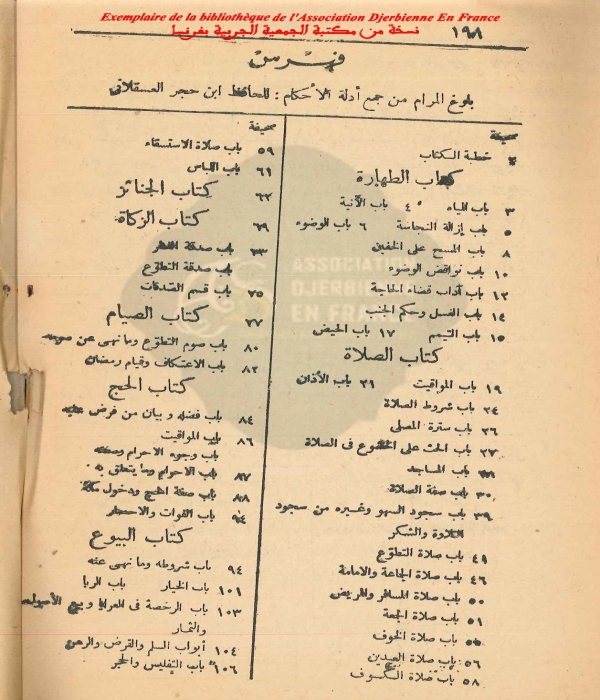 Exemplaire de la bibliothèque de l'Association Djerbienne En France
نسخة من مكتبة الجمعية الجربية بفرنسا
١٩٨
فهرس
بلوغ المرام من جمع أدلة الأحكام : للحافظ ابن حجر العسقلانى
صحيفة
خطبة الكتاب
كتاب الطهارة
٣ باب المياه ٤ باب الآنية
٥ باب إزالة النجاسة ٦ باب الوضوء
٨ باب المسح على الخفين
١٠ باب نواقض الوضوء
١٢ باب آداب قضاء الحاجة
١٤ باب الغسل وحكم الجنب
١٥ باب التيمم ١٧ باب الحيض
كتاب الصلاة
١٩ باب المواقيت ٢١ باب الأذان
٢٤ باب شروط الصلاة
٢٦ باب سترة المصلى
٢٧ باب الحث على الخشوع فى الصلاة
باب المساجد
٣٠ باب صفة الصلاة
٣٩ باب سجود السهو وغيره من سجود
التلاوة والشكر
٤١ باب صلاة التطوع
٤٦ باب صلاة الجماعة والامامة
٥٠ باب صلاة المسافر والمريض
٥١ باب صلاة الجمعة
باب صلاة الخوف
٥٦ باب صلاة العيدين
٥٨ باب صلاة الكسوف
صحيفة
٥٩ باب صلاة الاستسقاء
٦١ باب اللباس
٦٢ كتاب الجنائز
٦٩ كتاب الزكاة
باب صدقة الفطر
باب صدقة التطوع
٧٥ باب قسم الصدقات
٧٧ كتاب الصيام
٨٠ باب صوم التطوع وما نهى عن صومه
٨٢ باب الاعتكاف وقيام رمضان
كتاب الحج
٨٤ باب فضله و بيان من فرض عليه
٨٦ باب المواقيت
باب وجوه الاحرام وصفته
٨٧ باب الاحرام وما يتعلق به
٨٨ باب صفة الحج ودخول مكة
٩٤ باب الفوات والاحصار
كتاب البيوع
٩٤ باب شروطه وما نهى عنه
١٠١ باب الخيار باب الربا
١٠٣ باب الرخصة فى العرايا و بيع الأصول
والثمار
١٠٤ أبواب السلم والقرض والرهن
١٠٦ باب التفليس والحجر
ASSOCIATION
DJERBIENNE
EN FRANCE